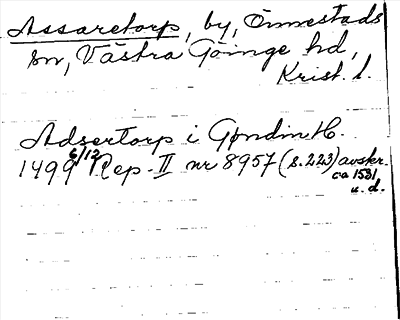 Assaretorp, by, Önnestads
sn, Västra Göinge hd,
Krist. l.
Adsertorp i Gøndin H.
1499 6/12 Rep. II nr 8957 (s. 223) avskr.
ca 1531
u. d.